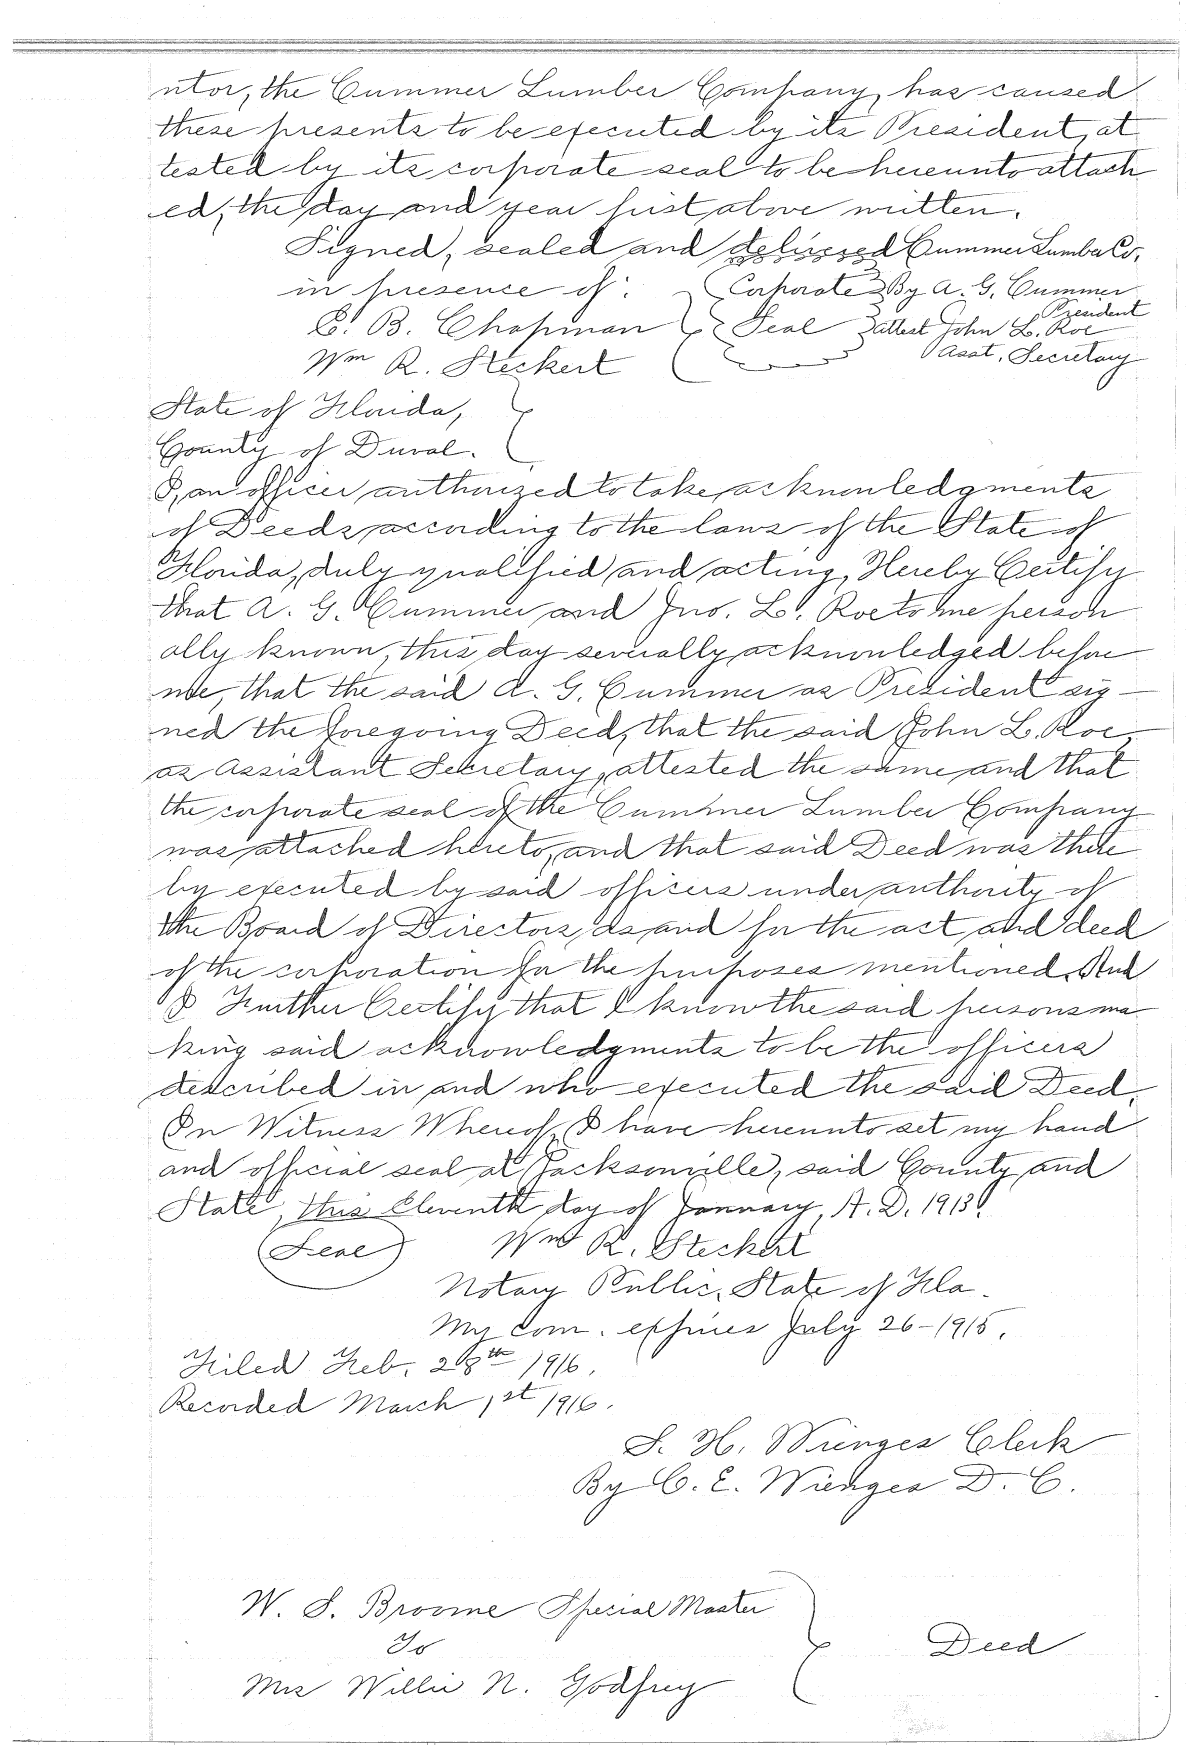 ntor, the Cummer Lumber Company, has caused
these presents to be executed by its President, at
tested by its corporate seal to be hereunto attach
ed, the day and year first above written.
Signed, sealed and delivered Cummer Lumber Co,
in presence of: Corporate By A. G. Cummer
President
C. B. Chapman Seal attest John L. Roe
Wm R. Steckert Asst. Secretary
State of Florida,
County of Duval.
I, an officer authorized to take acknowledgments
of Deeds, according to the laws of the State of
Florida, duly qualified and acting, Hereby Certify
that A. G. Cummer and Jno. L. Roe to me person
ally known, this day severally acknowledged before
me, that the said A. G. Cummer as President sig-
ned the foregoing Deed, that the said John L. Roe,
as Assistant Secretary, attested the same and that
the corporate seal of the Cummer Lumber Company
was attached hereto, and that said Deed was there
by executed by said officers under authority of
the Board of Directors, as and for the act and deed
of the corporation for the purposes mentioned. And
I Further Certify that I know the said persons ma
king said acknowledgments to be the officers
described in and who executed the said Deed.
In Witness Whereof, I have hereunto set my hand
and official seal at Jacksonville, said County and
State, this Eleventh day of January, A. D. 1913.
Seal Wm R. Steckert
Notary Public, State of Fla.
My com. expires July 26-1915.
Filed Feb. 28th 1916.
Recorded March 1st 1916.
S. H. Wienges Clerk
By C. E. Wienges D. C.
W. S. Broome Special Master
To Deed
Mrs Willie N. Godfrey